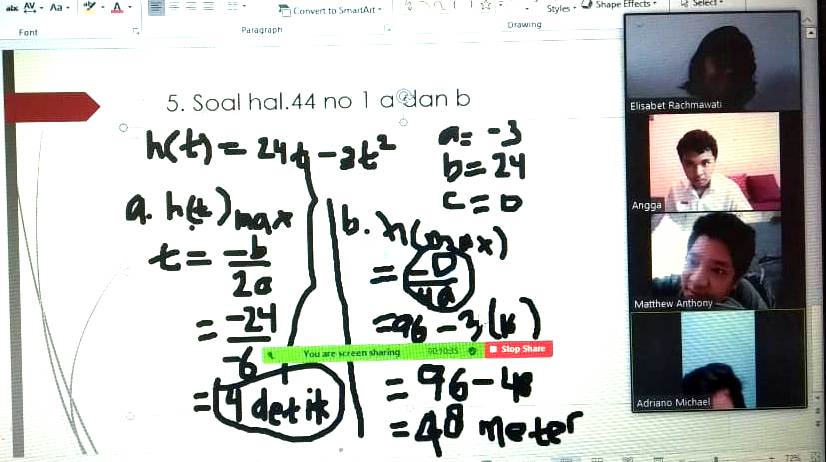 Aa
A
Convert to SmartArt
Styles
Shape Effects
Select
Font
Paragraph
Drawing
5. Soal hal.44 no 1 a dan b
h(t) = 24t - 3t²
a = -3
b = 24
c = 0
a. h(t) max
t = -b
2a
= -24
-6
= 4 detik
b. h(max)
= -D
4a
= 96 - 3(16)
= 96 - 48
= 48 meter
You are screen sharing
00:10:35
Stop Share
Elisabet Rachmawati
Angga
Matthew Anthony
Adriano Michael
72%